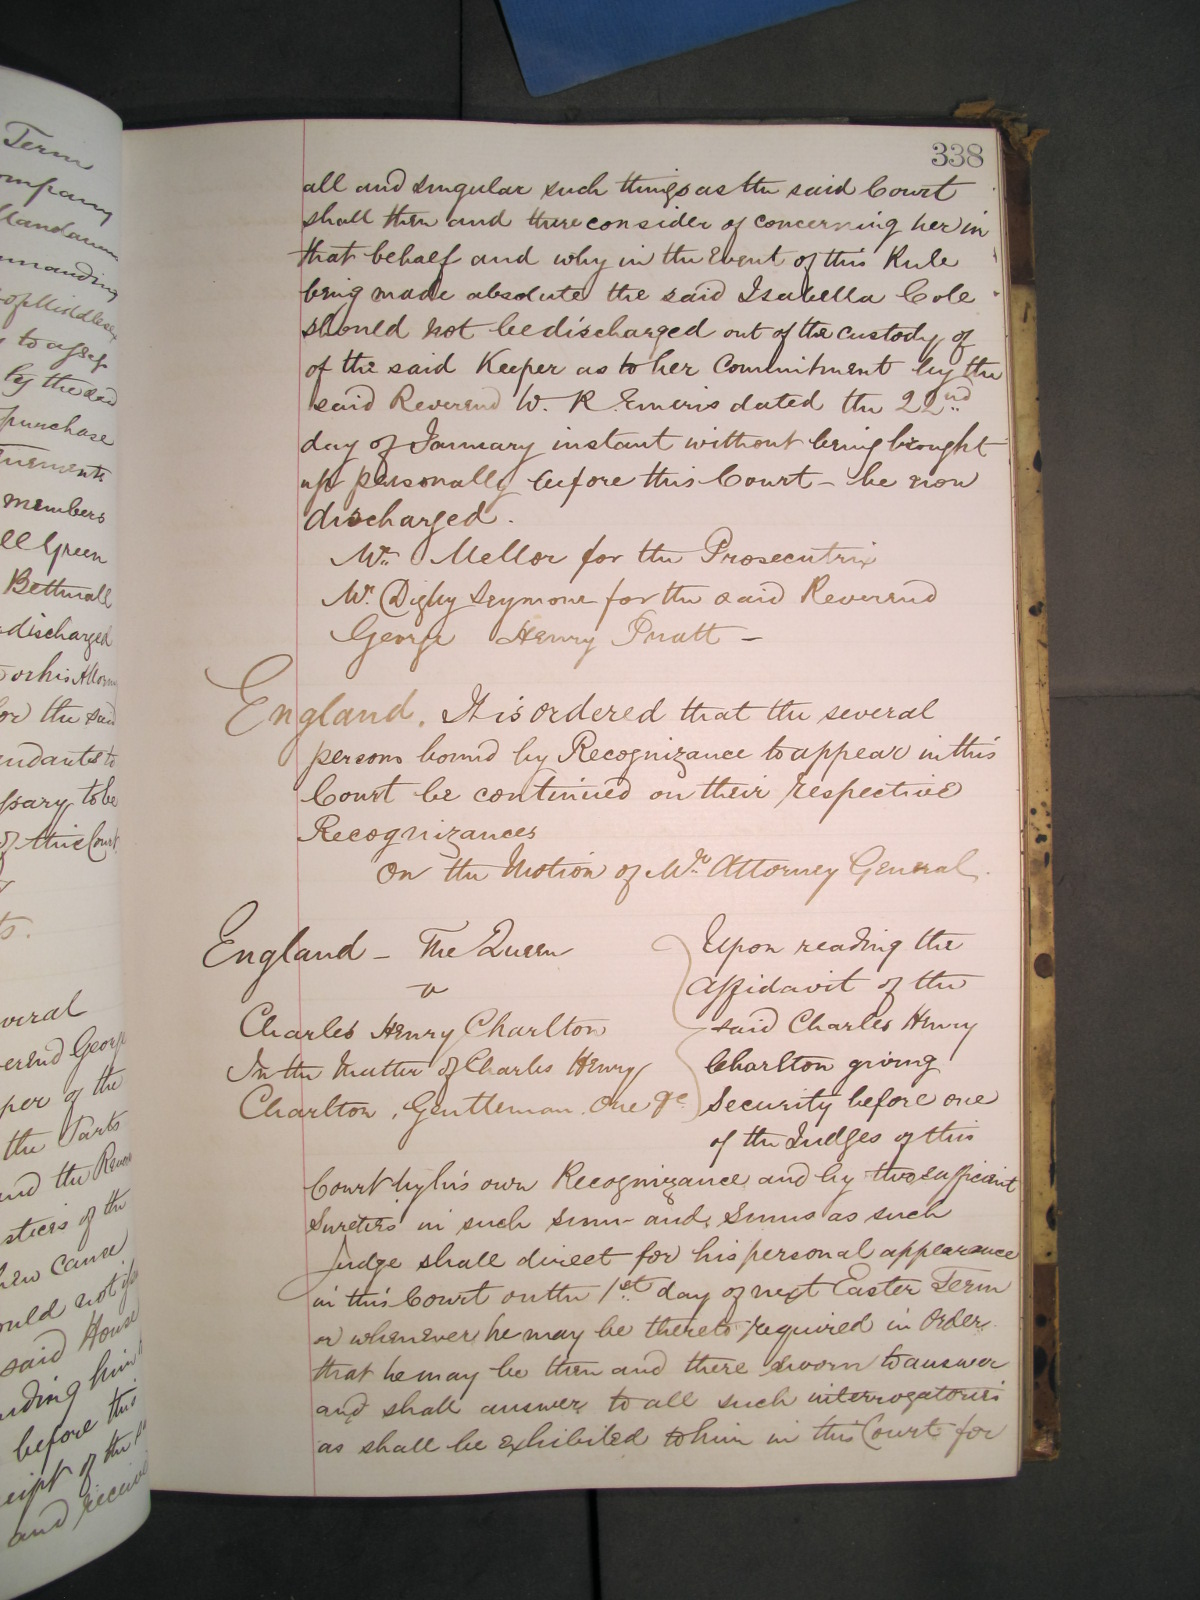 338
all and singular such things as the said Court
shall then and there consider of concerning her in
that behalf and why in the Event of this Rule
being made absolute the said Isabella Cole
should not be discharged out of the custody of
of the said Keeper as to her Commitment by the
said Reverend W. R. Emeris dated the 22nd
day of January instant without being brought
up personally before this Court - be now
discharged.
Mr. Mellor for the Prosecutrix
Mr. Digby Seymour for the said Reverend
George Henry Pratt -
England. It is ordered that the several
persons bound by Recognizance to appear in this
Court be continued on their respective
Recognizances
On the Motion of Mr. Attorney General.
England - The Queen
v
Charles Henry Charlton
In the Matter of Charles Henry
Charlton, Gentleman One &c
Upon reading the
Affidavit of the
said Charles Henry
Charlton giving
Security before one
of the Judges of this
Court by his own Recognizance and by two sufficient
Sureties in such sum and Sums as such
Judge shall direct for his personal appearance
in this Court on the 1st day of next Easter Term
or whenever he may be thereto required in Order
that he may be then and there sworn to answer
and shall answer to all such interrogatories
as shall be exhibited to him in this Court for
Term
Company
Mandamus
commanding
of Middlesex
to assess
by the said
purchase
members
Green
Bethnall
discharged
or his Attorney
for the said
to be
of this Court
several
Reverend George
per of the
the Parts
and the Reverend
Justices of the
shew cause
said House
him
before this
receipt of the
and receive